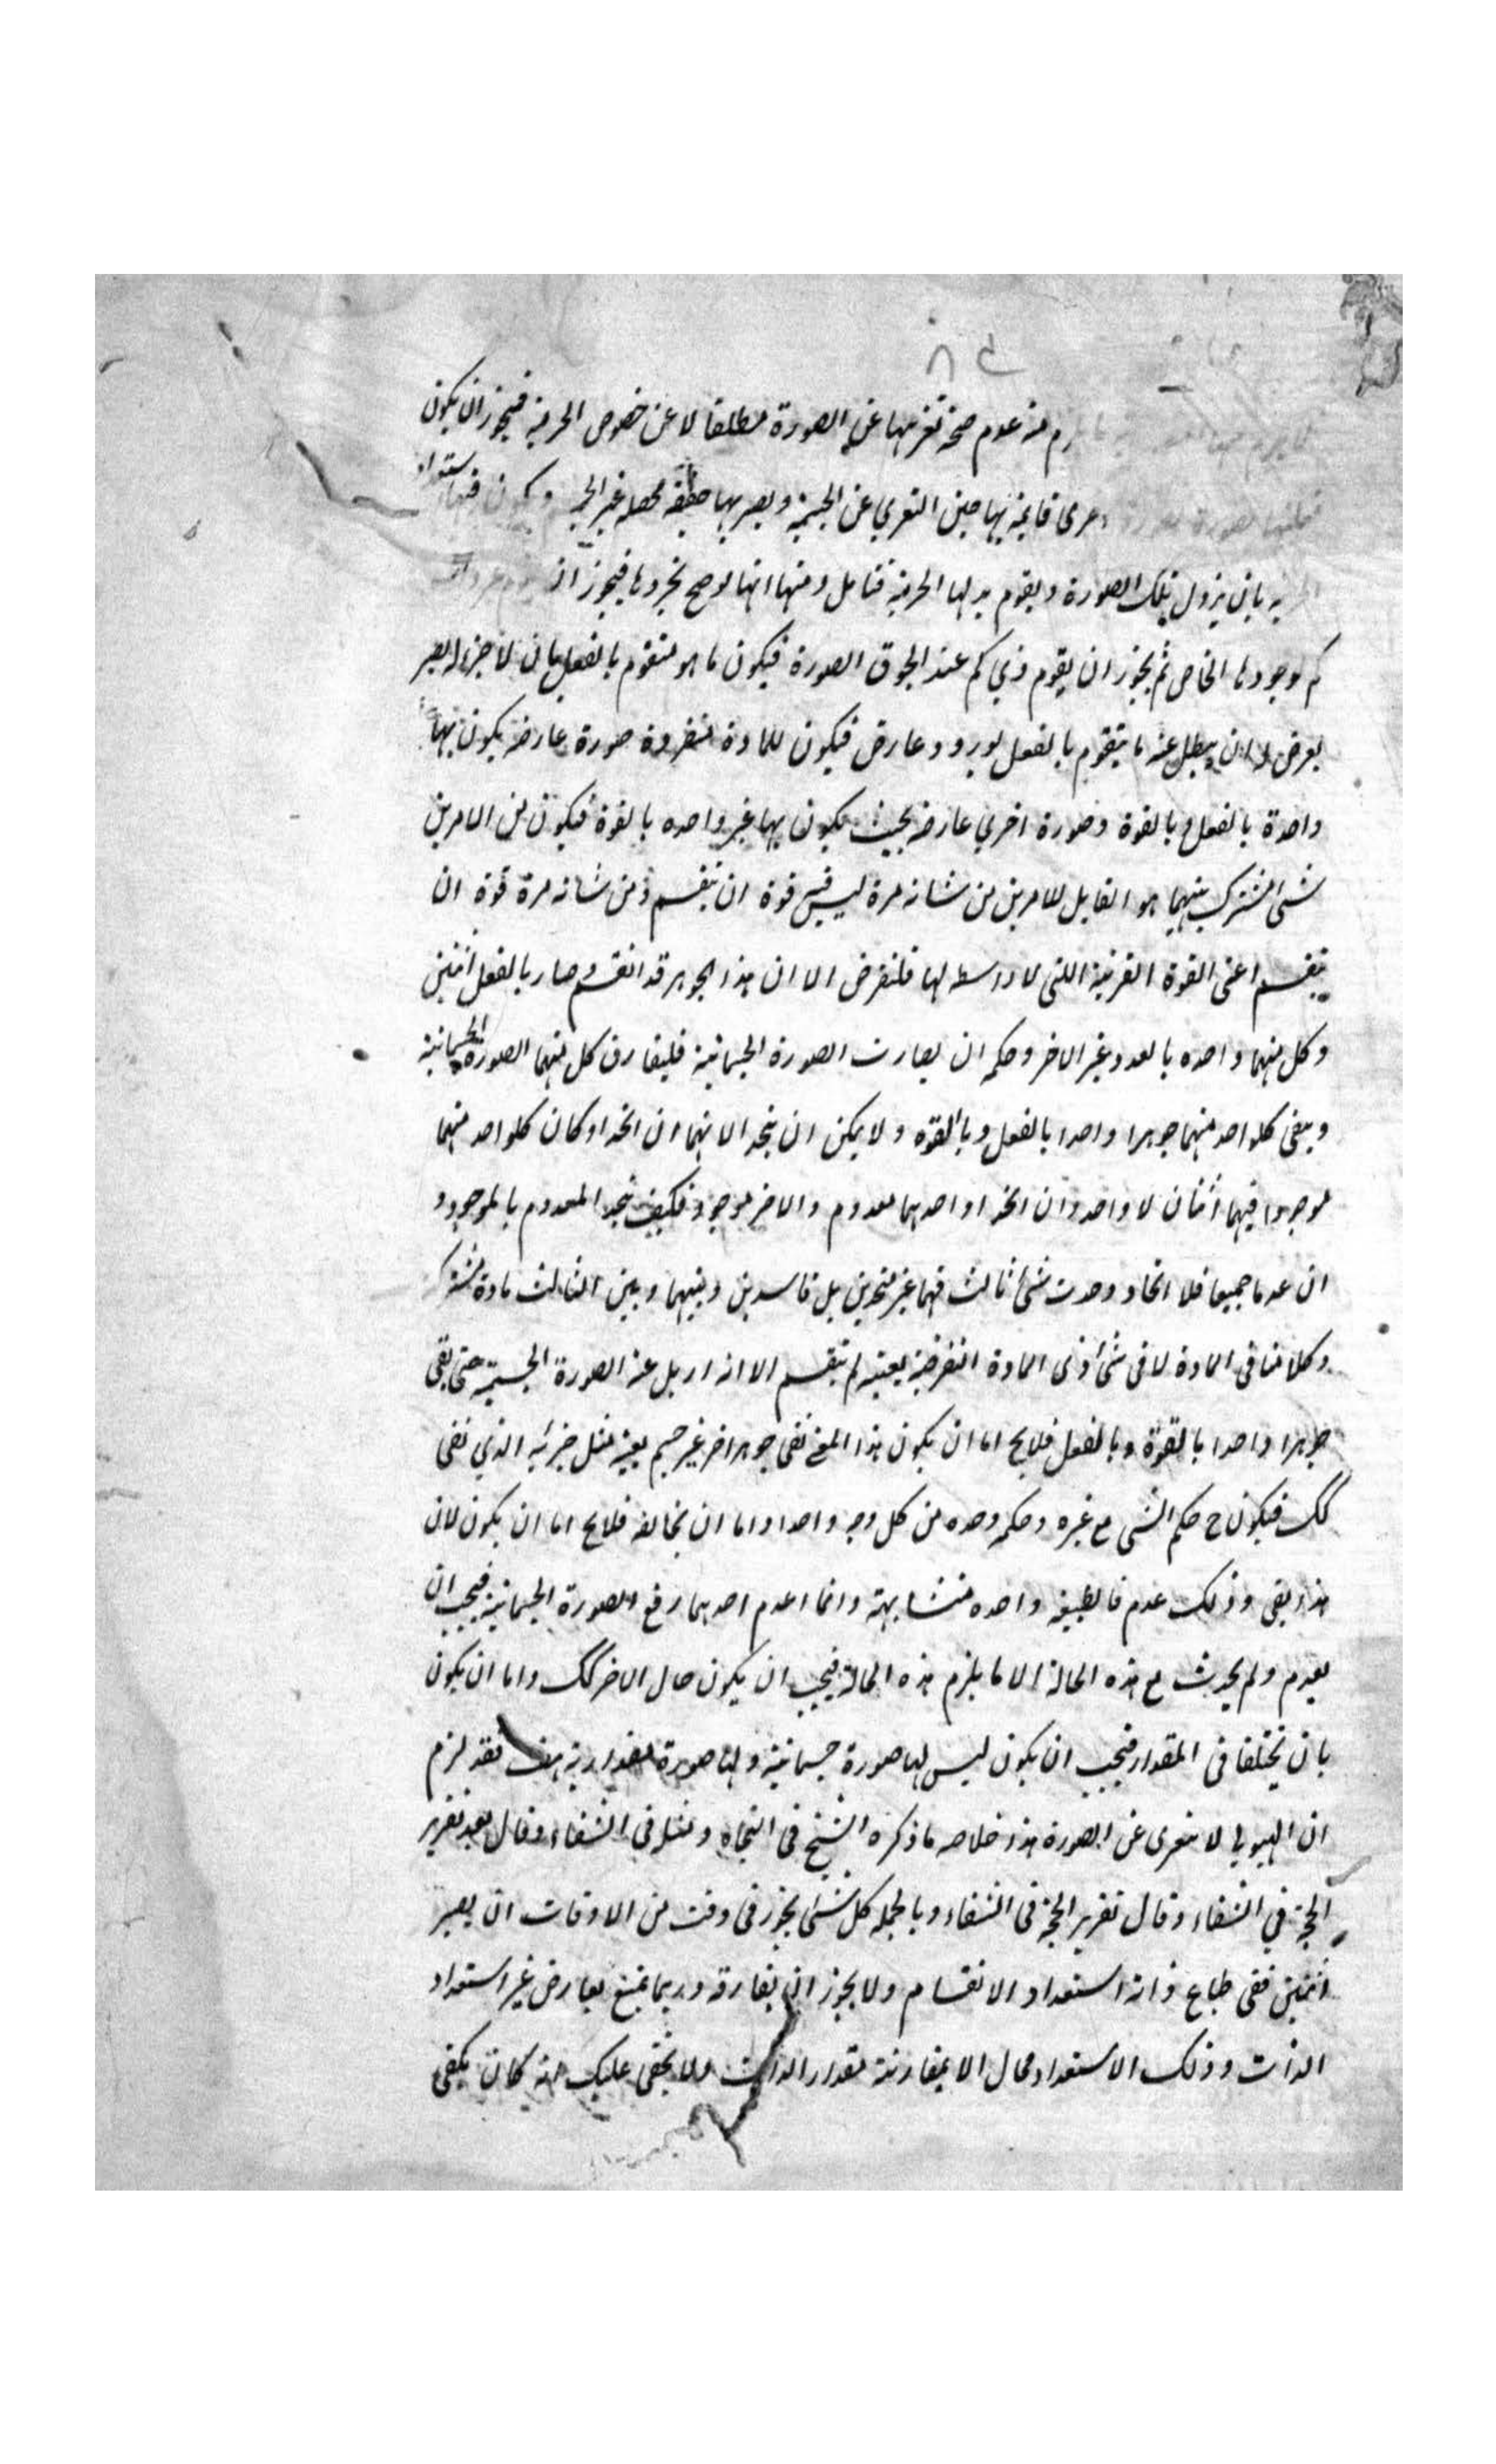 عدم صحة تعريها عن الصورة مطلقا لا عن خصوص الجرمية فيجوز ان يكون
اخرى قايمة بها حين التعري عن الجسمية ويصير بها حقيقة محصلة غير الجرمية ويكون فيها استعداد
بان يزول تلك الصورة ويقوم بدلها الجرمية فتامل ومنها انها لو صح تجردها فيجوز ان
كم لوجودها الخاص ثم يجوز ان يقوم ذي كم عند لحوق الصورة فيكون ما هو متقوم بالفعل بان لا جزء له يصير
يعرض له ان يبطل عنه ما يتقوم بالفعل لورود عارض فيكون للمادة منفردة صورة عارضة يكون بها
واحدة بالفعل وبالقوة وصورة اخرى عارضة بحيث يكون بها غير واحدة بالقوة فيكون بين الامرين
شئ مشترك بينهما هو القابل للامرين من شانه مرة ليس فيه قوة ان ينقسم ومن شانه مرة قوة ان
ينقسم اعنى القوة القريبة اللتى لا واسطه لها فلنفرض الا ان هذا الجوهر قد انقسم وصار بالفعل اثنين
وكل منهما واحده بالعدد غير الاخر وحكمه ان يفارق الصورة الجسمانية فليفارق كل منهما الصورة الجسمانية
ويبقى كلواحد منهما جوهرا واحدا بالفعل وبالقوه ولا يمكن ان يتحد الانهما ان اتحدا وكان كلواحد منهما
موجودا فيهما اثنان لا واحد وان اتحدا واحدهما معدوم والاخر موجود فكيف يتحد المعدوم بالموجود و
ان عدما جميعا فلا اتحاد وحدث شئ ثالث فهما غير متحدين بل فاسدين وبينهما وبين الثالث مادة مشتركة
وكلامنا فى المادة لا فى شئ ذى المادة النفرضية بعينه لم ينقسم الا انه ازيل عنه الصورة الجسمية حتى بقى
جوهرا واحدا بالقوة وبالفعل فلايخ اما ان يكون هذا الذى بقى جوهرا غير جسم بعينه مثل جزئه الذي بقى
كك فيكون ح حكم الشئ مع غيره وحكمه وحده من كل وجه واحدا واما ان يخالفه فلايخ اما ان يكون لان
هذا بقى وذلك عدم فالطبيعة واحده متشابهة وانما اعدم احدهما رفع الصورة الجسمانية فيجب ان
يعدم ولم يحدث مع هذه الحالة الا ما يلزم هذه الحالة فيجب ان يكون حال الاخر كك واما ان يكون
بان يختلفا فى المقدار فيجب ان يكون ليس لها صورة جسمانية ولها صورة مقدارية هف فقد لزم
ان الهيولى لا يتعرى عن الصورة هذا خلاصه ما ذكره الشيخ فى النجاه ومثله فى الشفاء وقال بعد تقرير
الحجة في الشفاء وقال تقرير الحجة فى الشفاء وبالجمله كل شئ يجوز فى وقت من الاوقات ان يصير
اثنين ففى طباع ذاته استعداد الانقسام ولا يجوز ان يفارقه وربما يمتنع بعارض غير استعداد
الذات وذلك الاستعداد محال الا بمقارنة مقدار الذات ولا يخفى عليك انه كان يكفى